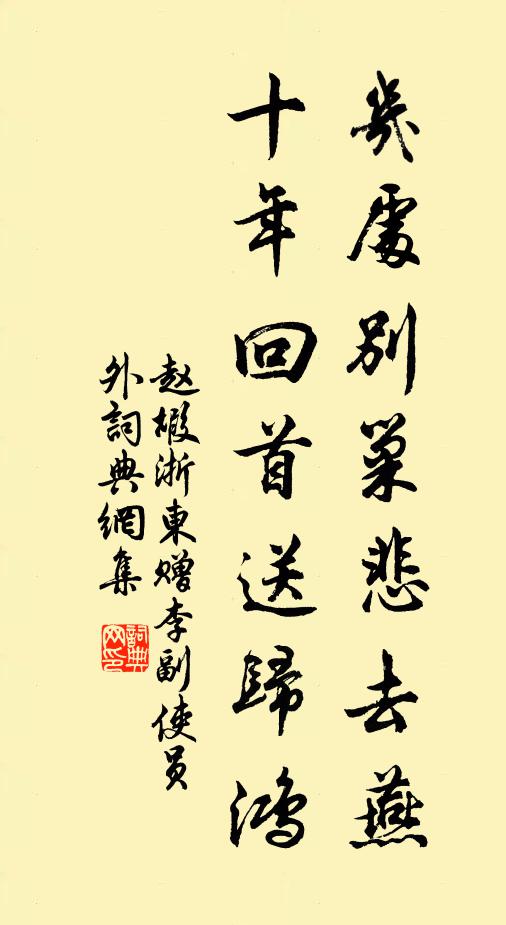 幾處別巢悲去燕
十年回首送歸鴻
赵嘏浙東赠李副使员
外詞典網集
詞典网印